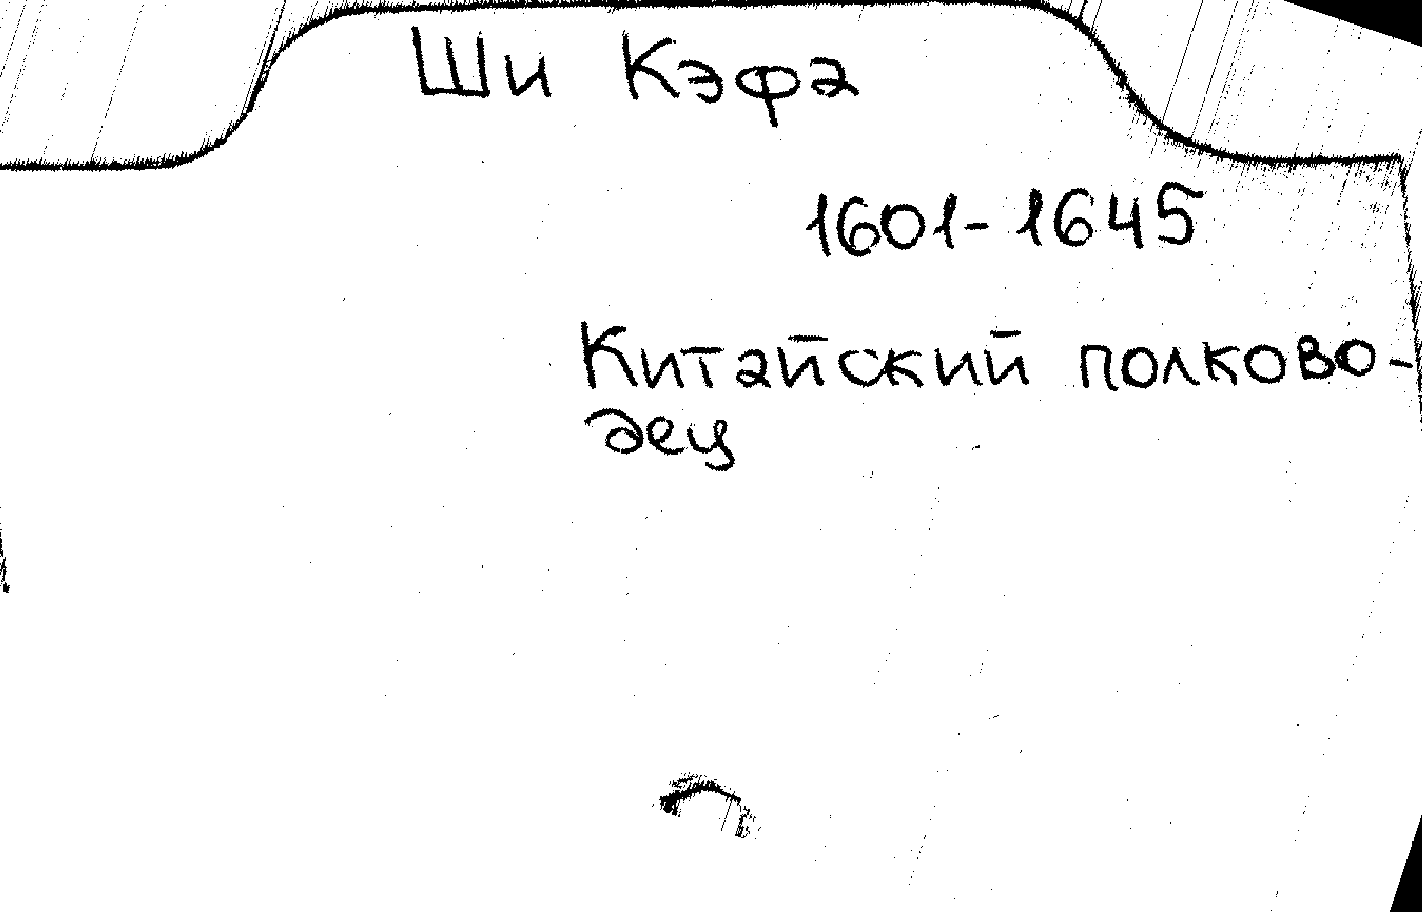 Ши Кэфа
1601-1645
Китайский полково-
дец